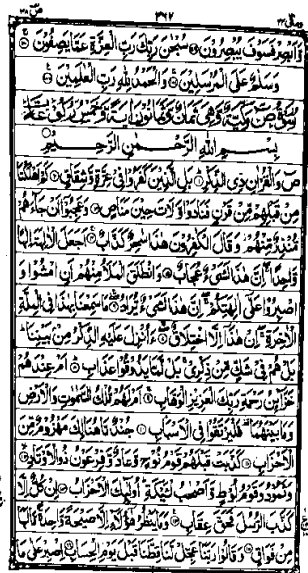 ص ٣٨ ٣٦٧ وَمَالِیَ ٢٣
وَّاَبْصِرْ فَسَوْفَ يُبْصِرُوْنَ سُبْحٰنَ رَبِّكَ رَبِّ الْعِزَّةِ عَمَّا يَصِفُوْنَ
وَسَلٰمٌ عَلَى الْمُرْسَلِيْنَ وَالْحَمْدُ لِلّٰهِ رَبِّ الْعٰلَمِيْنَ
بِسْمِ اللّٰهِ الرَّحْمٰنِ الرَّحِيْمِ
صٓ وَالْقُرْاٰنِ ذِى الذِّكْرِ بَلِ الَّذِيْنَ كَفَرُوْا فِىْ عِزَّةٍ وَّشِقَاقٍ كَمْ اَهْلَكْنَا
مِنْ قَبْلِهِمْ مِّنْ قَرْنٍ فَنَادَوْا وَّلَاتَ حِيْنَ مَنَاصٍ وَعَجِبُوْۤا اَنْ جَآءَهُمْ
مُّنْذِرٌ مِّنْهُمْ وَقَالَ الْكٰفِرُوْنَ هٰذَا سٰحِرٌ كَذَّابٌ اَجَعَلَ الْاٰلِهَةَ اِلٰهًا
وَّاحِدًا اِنَّ هٰذَا لَشَىْءٌ عُجَابٌ وَانْطَلَقَ الْمَلَاُ مِنْهُمْ اَنِ امْشُوْا وَ
اصْبِرُوْا عَلٰۤى اٰلِهَتِكُمْ اِنَّ هٰذَا لَشَىْءٌ يُّرَادُ مَا سَمِعْنَا بِهٰذَا فِى الْمِلَّةِ
الْاٰخِرَةِ اِنْ هٰذَاۤ اِلَّا اخْتِلَاقٌ ءَاُنْزِلَ عَلَيْهِ الذِّكْرُ مِنْۢ بَيْنِنَا
بَلْ هُمْ فِىْ شَكٍّ مِّنْ ذِكْرِىْ بَلْ لَّمَّا يَذُوْقُوْا عَذَابِ اَمْ عِنْدَهُمْ
خَزَآئِنُ رَحْمَةِ رَبِّكَ الْعَزِيْزِ الْوَهَّابِ اَمْ لَهُمْ مُّلْكُ السَّمٰوٰتِ وَالْاَرْضِ
وَمَا بَيْنَهُمَا فَلْيَرْتَقُوْا فِى الْاَسْبَابِ جُنْدٌ مَّا هُنَالِكَ مَهْزُوْمٌ مِّنَ
الْاَحْزَابِ كَذَّبَتْ قَبْلَهُمْ قَوْمُ نُوْحٍ وَّعَادٌ وَّفِرْعَوْنُ ذُو الْاَوْتَادِ
وَثَمُوْدُ وَقَوْمُ لُوْطٍ وَّاَصْحٰبُ لْئَيْكَةِ اُولٰٓئِكَ الْاَحْزَابُ اِنْ كُلٌّ اِلَّا
كَذَّبَ الرُّسُلَ فَحَقَّ عِقَابِ وَمَا يَنْظُرُ هٰٓؤُلَآءِ اِلَّا صَيْحَةً وَّاحِدَةً مَّا لَهَا
مِنْ فَوَاقٍ وَقَالُوْا رَبَّنَا عَجِّلْ لَّنَا قِطَّنَا قَبْلَ يَوْمِ الْحِسَابِ اِصْبِرْ عَلٰى مَا